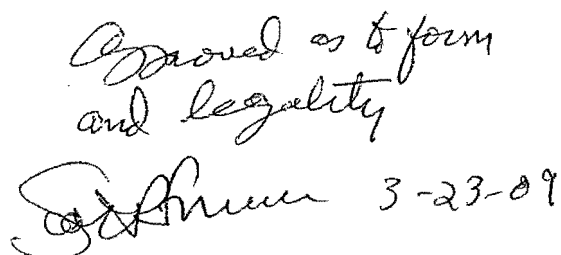 Approved as to form
and legality
3-23-09